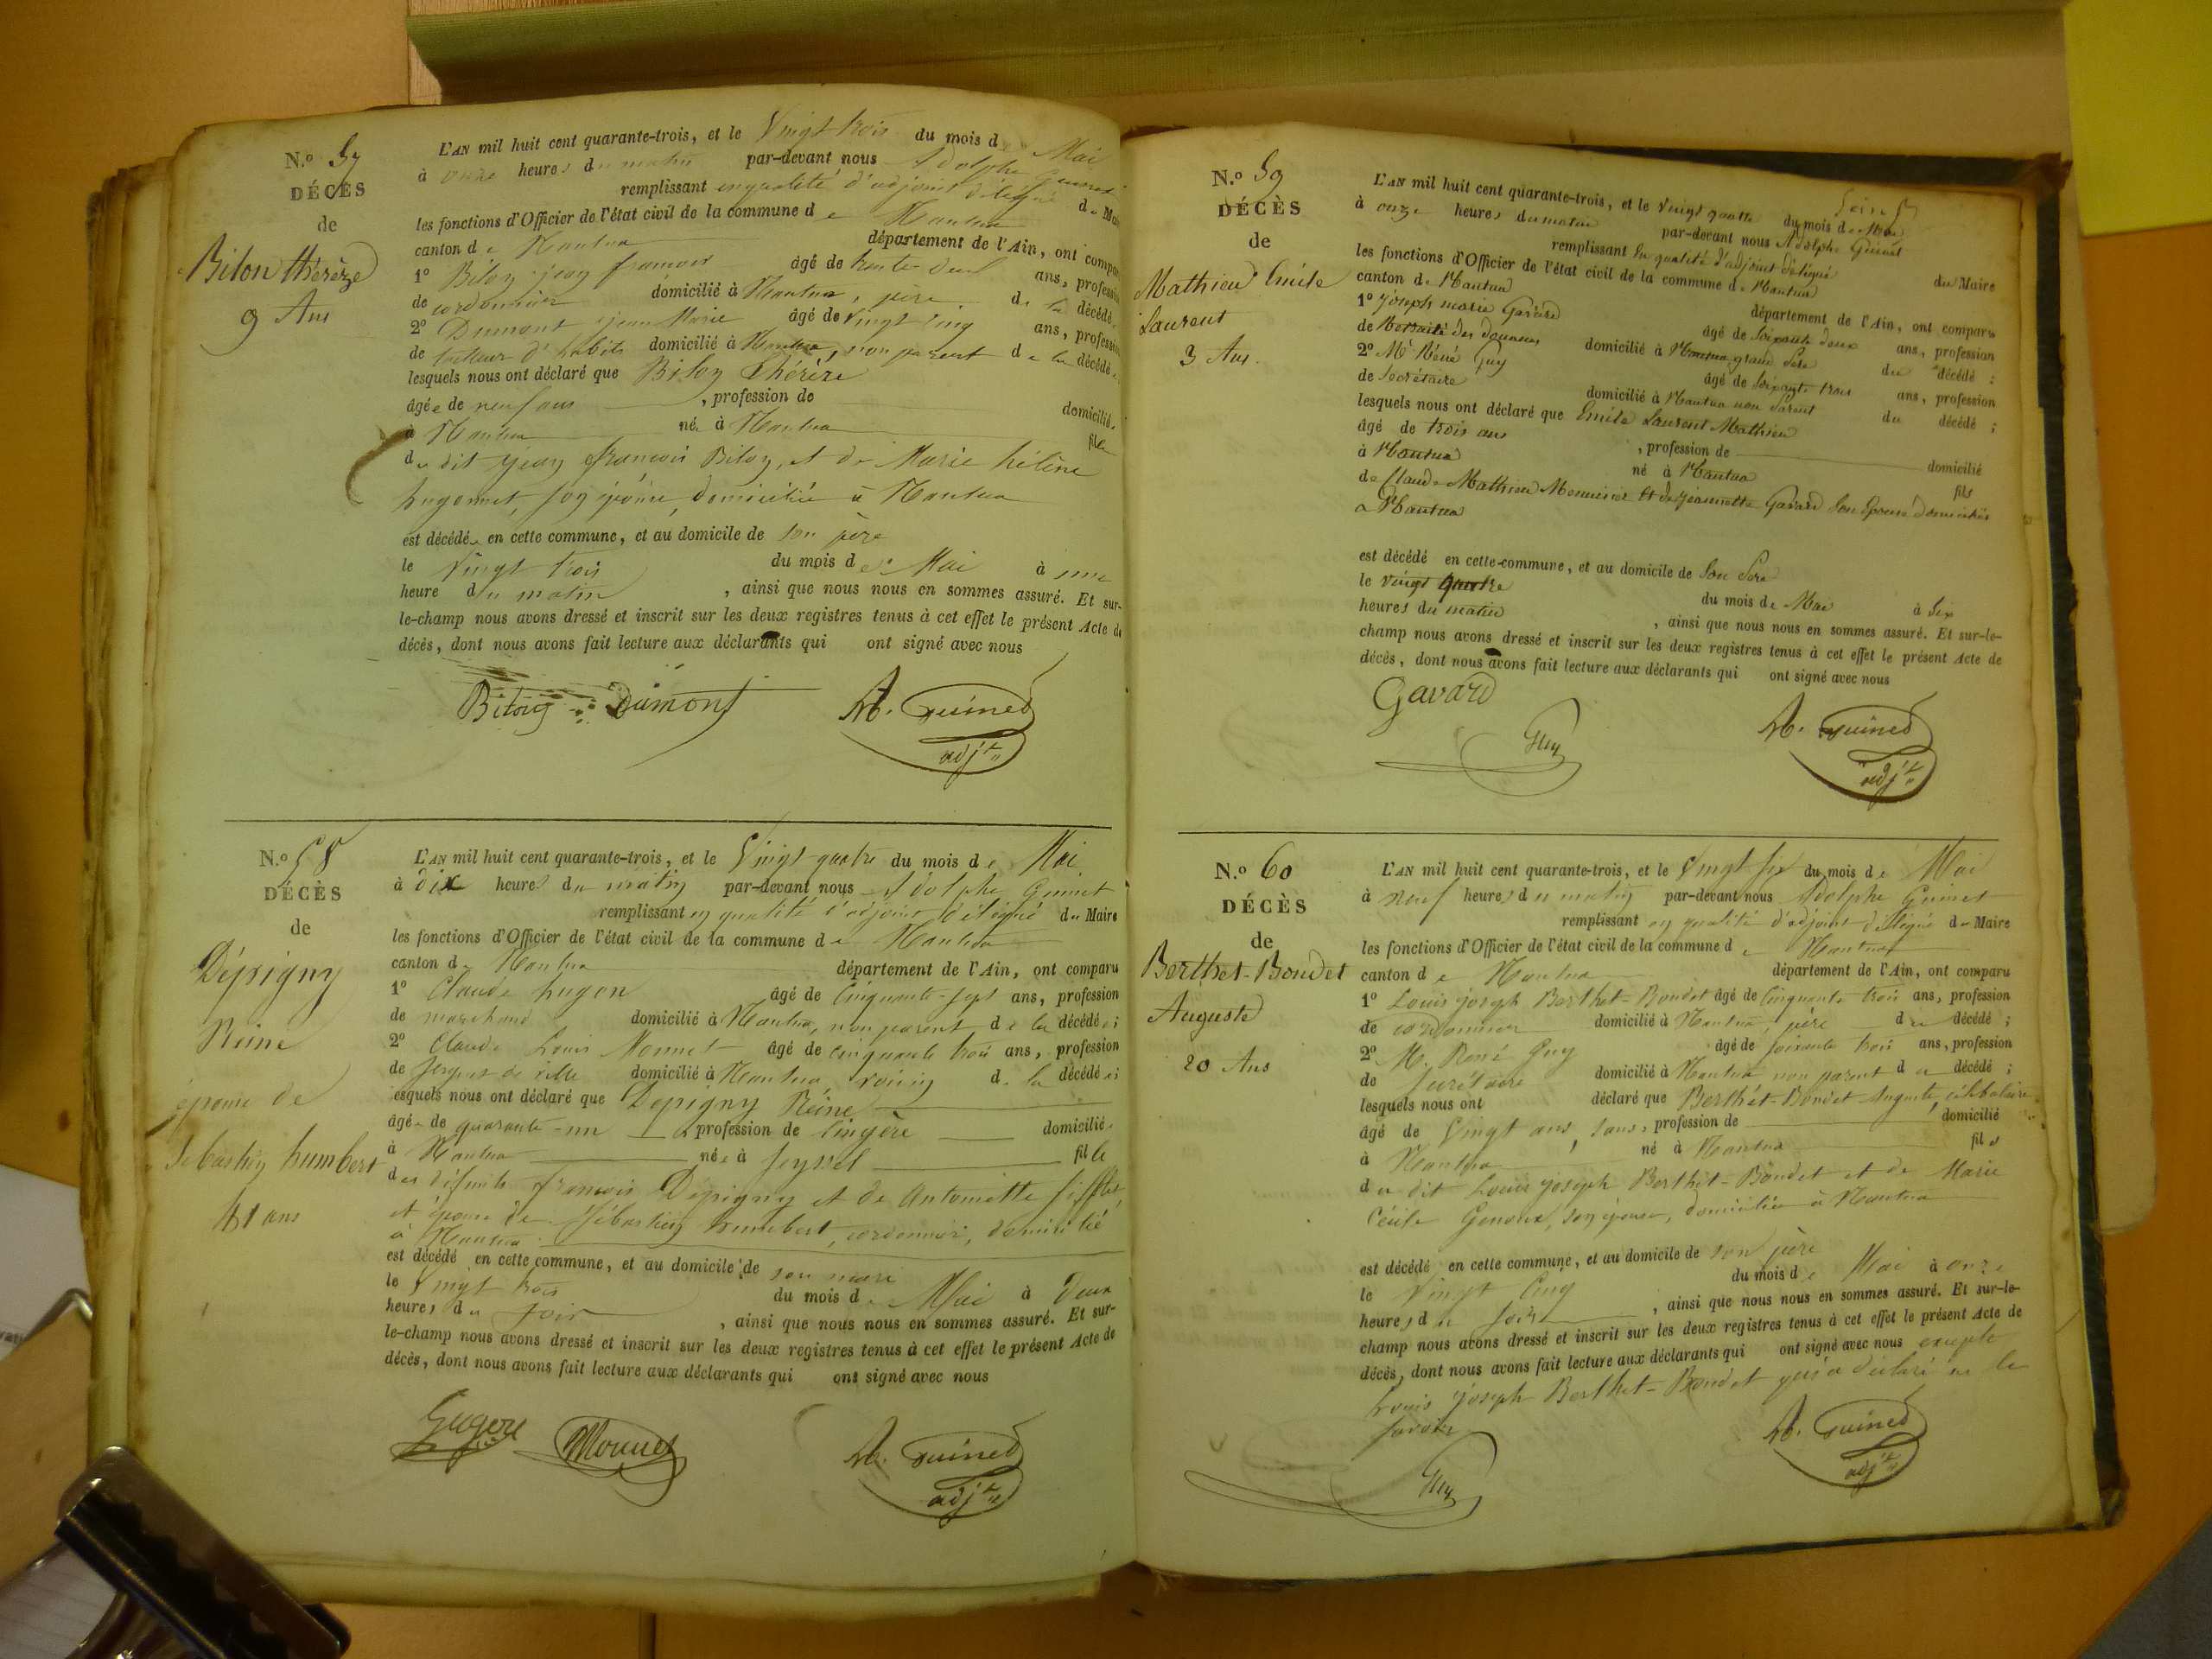 N.º 57
DÉCÈS
de
Biton thérèze
9 Ans
L'AN mil huit cent quarante-trois, et le Vingt trois du mois de Mai
à onze heures du matin par-devant nous Adolphe Guinet
remplissant en qualité d'adjoint délégué du Mai
les fonctions d'Officier de l'état civil de la commune de Nantua
canton de Nantua département de l'Ain, ont compa
1º Biton jean françois âgé de trente deux ans, professi
de cordonnier domicilié à Nantua, père de la décédé
2º Dumont jean Marie âgé de vingt cinq ans, professio
de tailleur d'habits domicilié à Nantua, non parent de la décédé
lesquels nous ont déclaré que Biton thérèze
âgée de neuf ans , profession de domicilié
à Nantua née à Nantua fille
du dit jean françois Biton, et de Marie hélène
hugonnet, son épouse, domiciliés à Nantua
est décédée en cette commune, et au domicile de son père
le Vingt trois du mois de Mai à une
heure du matin , ainsi que nous nous en sommes assuré. Et sur-
le-champ nous avons dressé et inscrit sur les deux registres tenus à cet effet le présent Acte de
décès, dont nous avons fait lecture aux déclarants qui ont signé avec nous
Biton Dumont A. Guinet
adjt
N.º 58
DÉCÈS
de
Dépigny
Reine
épouse de
Sébastien humbert
41 ans
L'AN mil huit cent quarante-trois, et le Vingt quatre du mois de Mai
à dix heures du matin par-devant nous Adolphe Guinet
remplissant en qualité d'adjoint délégué du Maire
les fonctions d'Officier de l'état civil de la commune de Nantua
canton de Nantua département de l'Ain, ont comparu
1º Claude hugon âgé de Cinquante-sept ans, profession
de marchand domicilié à Nantua, non parent de la décédée ;
2º Claude Louis Monnet âgé de cinquante trois ans, profession
de sergent de ville domicilié à Nantua, voisin de la décédée ;
esquels nous ont déclaré que Dépigny Reine
âgée de quarante-un , profession de lingère domiciliée
à Nantua née à Seyssel fille
des défunts françois Dépigny et de Antoinette
et épouse de Sébastien humbert, cordonnier, domicilié
à Nantua
est décédé en cette commune, et au domicile de son mari
le Vingt trois du mois de Mai à Deux
heures du soir , ainsi que nous nous en sommes assuré. Et sur-
le-champ nous avons dressé et inscrit sur les deux registres tenus à cet effet le présent Acte de
décès, dont nous avons fait lecture aux déclarants qui ont signé avec nous
Monnet A. Guinet
adjt
N.º 59
DÉCÈS
de
Mathieu Emile
Laurent
3 Ans
L'AN mil huit cent quarante-trois, et le vingt quatre du mois de Mai
à onze heures du matin par-devant nous Adolphe Guinet
remplissant en qualité d'adjoint délégué du Maire
les fonctions d'Officier de l'état civil de la commune de Nantua
canton de Nantua département de l'Ain, ont comparu
1º Joseph marie Gavard âgé de Soixante deux ans, profession
de Retraité des douanes domicilié à Nantua grand Père du décédé ;
2º Mr Réné Guy âgé de Soixante trois ans, profession
de Secrétaire domicilié à Nantua non Parent du décédé ;
lesquels nous ont déclaré que Emile Laurent Mathieu
âgé de trois ans , profession de domicilié
à Nantua né à Nantua fils
de Claude Mathieu Menuisier et de Jeannette Gavard Son Epouse domiciliés
a Nantua
est décédé en cette commune, et au domicile de Son Père
le vingt quatre du mois de Mai à Six
heures du matin , ainsi que nous nous en sommes assuré. Et sur-le-
champ nous avons dressé et inscrit sur les deux registres tenus à cet effet le présent Acte de
décès, dont nous avons fait lecture aux déclarants qui ont signé avec nous
Gavard
Guy A. Guinet
adjt
N.º 60
DÉCÈS
de
Berthet-Bondet
Auguste
20 Ans
L'AN mil huit cent quarante-trois, et le Vingt six du mois de Mai
à neuf heures du matin par-devant nous Adolphe Guinet
remplissant en qualité d'adjoint délégué du Maire
les fonctions d'Officier de l'état civil de la commune de Nantua
canton de Nantua département de l'Ain, ont comparu
1º Louis joseph Berthet-Bondet âgé de Cinquante trois ans, profession
de cordonnier domicilié à Nantua, père du décédé ;
2º M. René Guy âgé de soixante trois ans, profession
de Secrétaire domicilié à Nantua non parent du décédé ;
lesquels nous ont déclaré que Berthet-Bondet Auguste, célibataire
âgé de Vingt ans, sans profession de domicilié
à Nantua né à Nantua fils
du dit Louis joseph Berthet-Bondet et de Marie
Cécile Genoux, son épouse, domiciliés à Nantua
est décédé en cette commune, et au domicile de son père
le Vingt Cinq du mois de Mai à onze
heures du soir , ainsi que nous nous en sommes assuré. Et sur-le-
champ nous avons dressé et inscrit sur les deux registres tenus à cet effet le présent Acte de
décès, dont nous avons fait lecture aux déclarants qui ont signé avec nous excepté
Louis joseph Berthet-Bondet qui a déclaré ne le
savoir
Guy A. Guinet
adjt